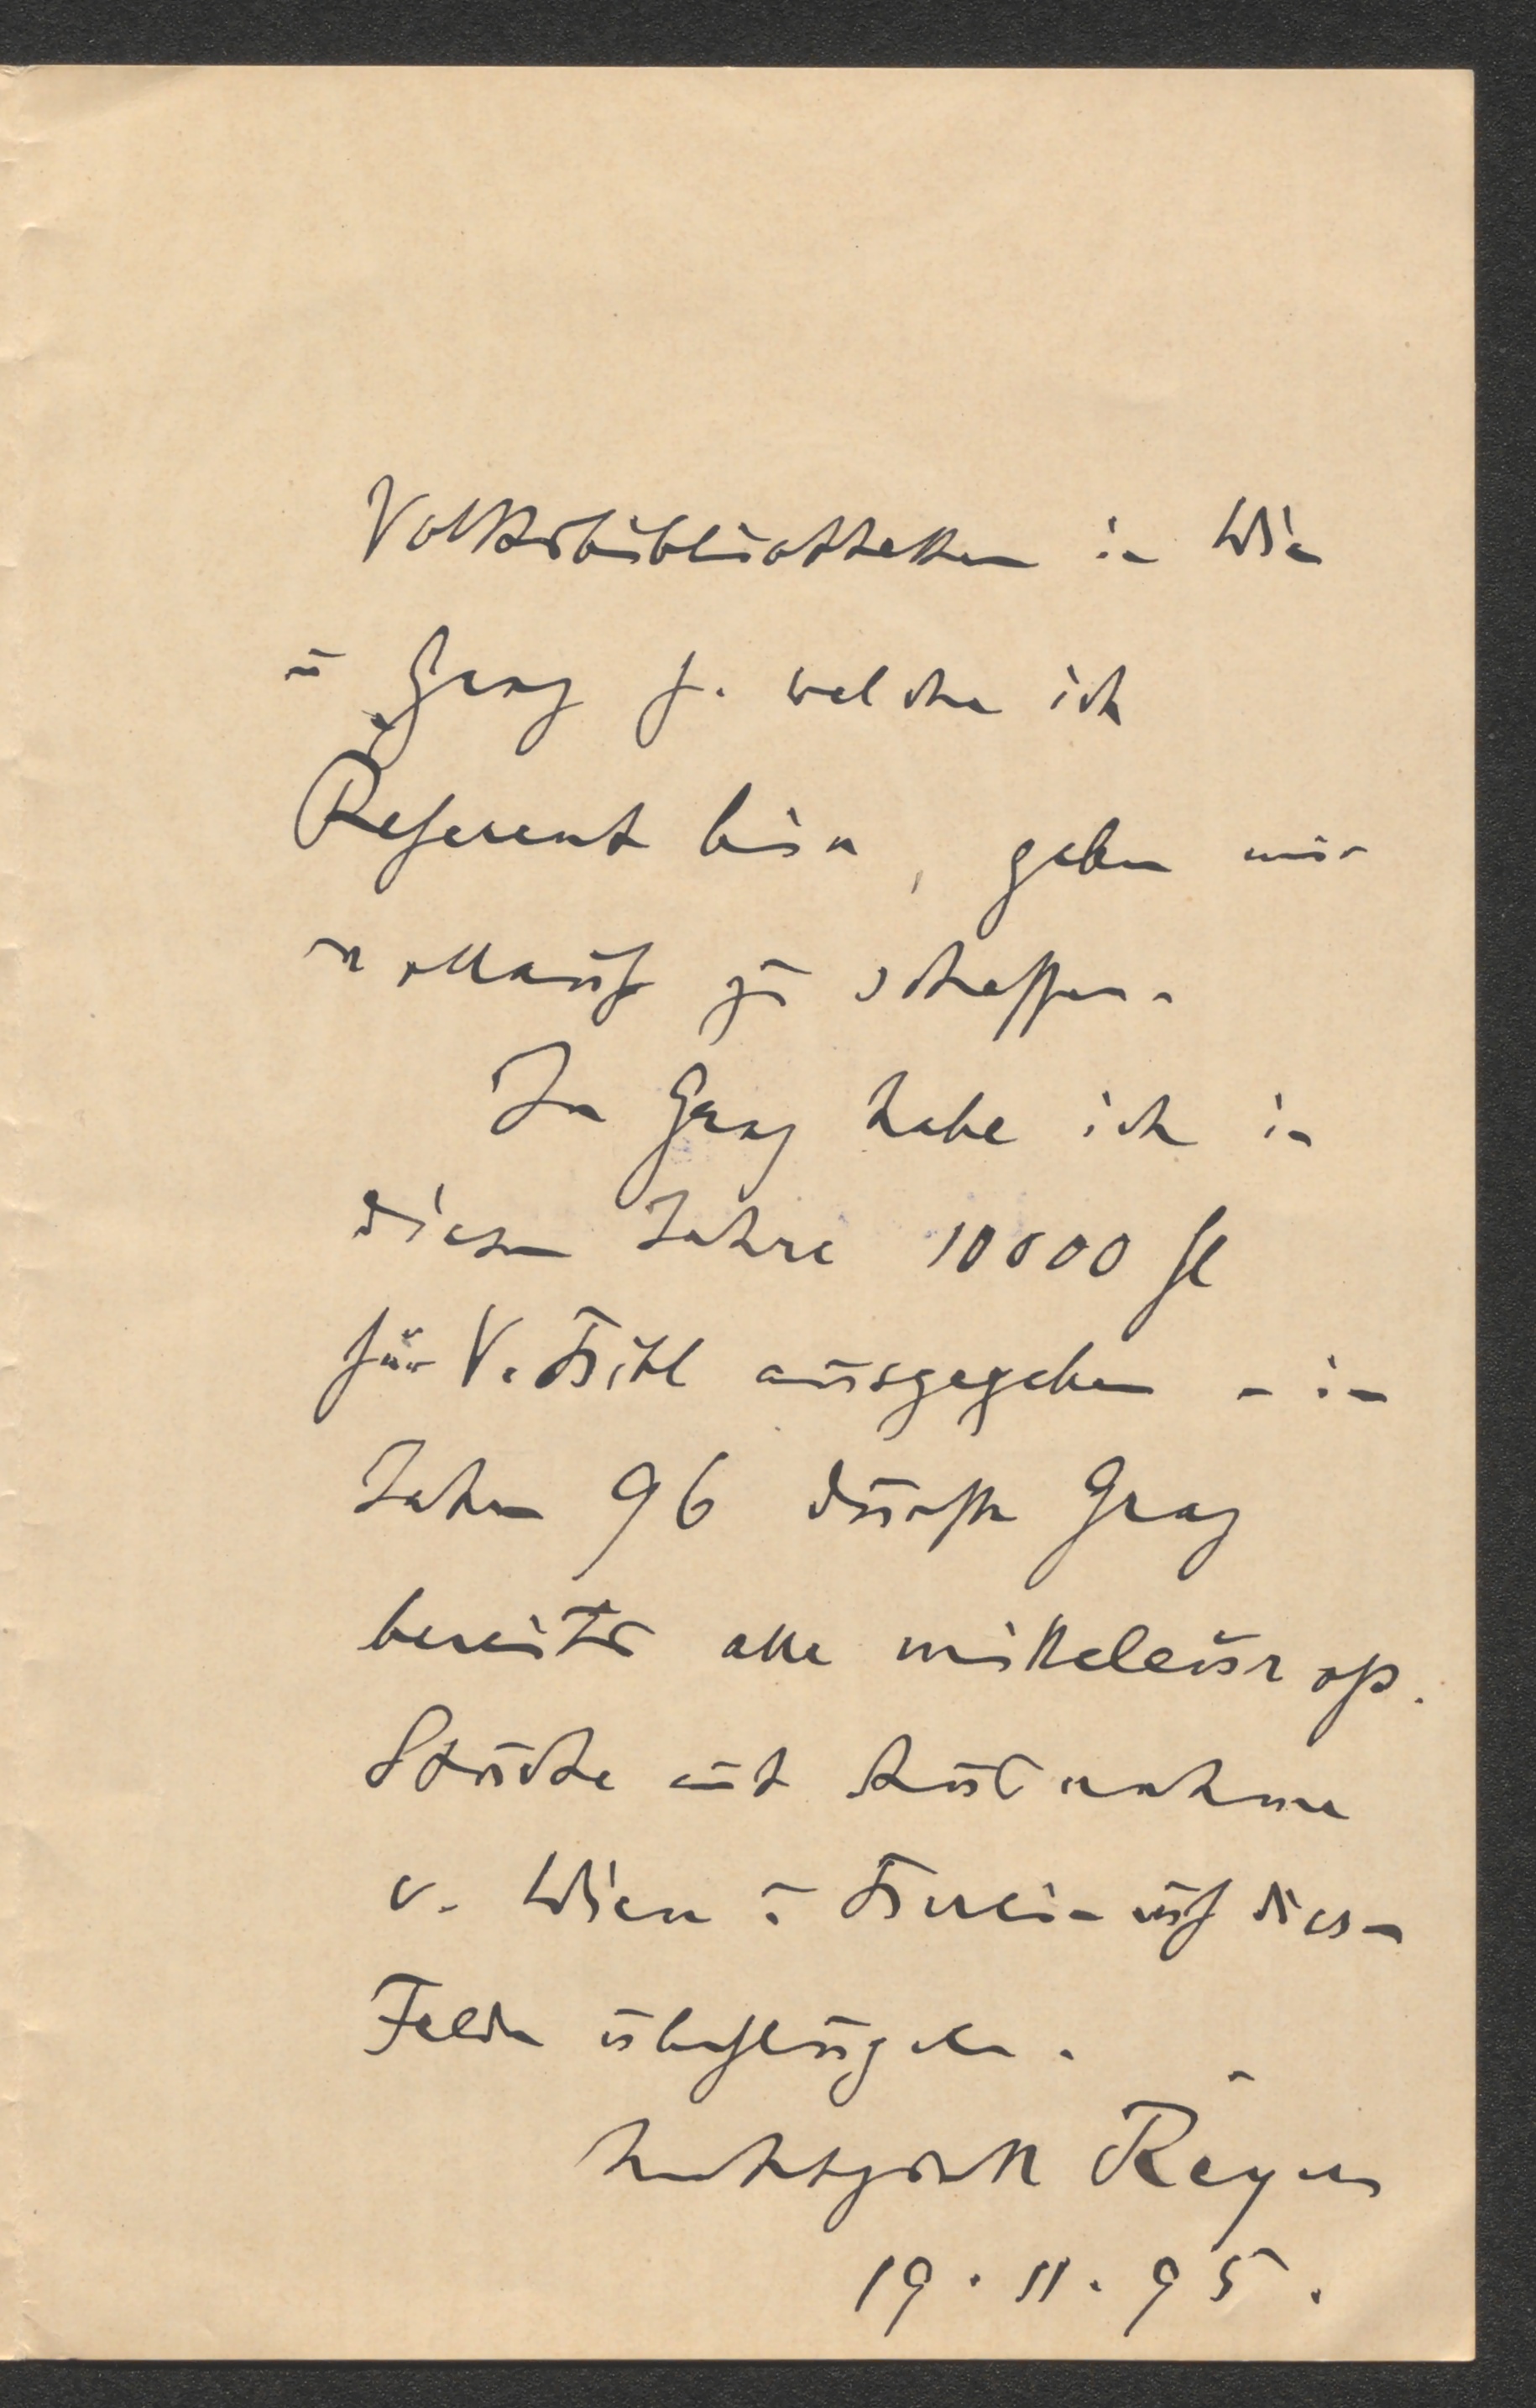 Volksbibliotheken in Wien
u Graz f. welche ich
Referent bin, geben mir
vollauf zu schaffen.
In Graz habe ich in
diesem Jahre 10000 fl
für V. Bibl ausgegeben – im
Jahre 96 dürfte Graz
bereits alle mitteleurop.
Städte mit Ausnahme
v. Wien u Berlin auf diesem
Felde überflügeln.
Reyer
19.11.95.